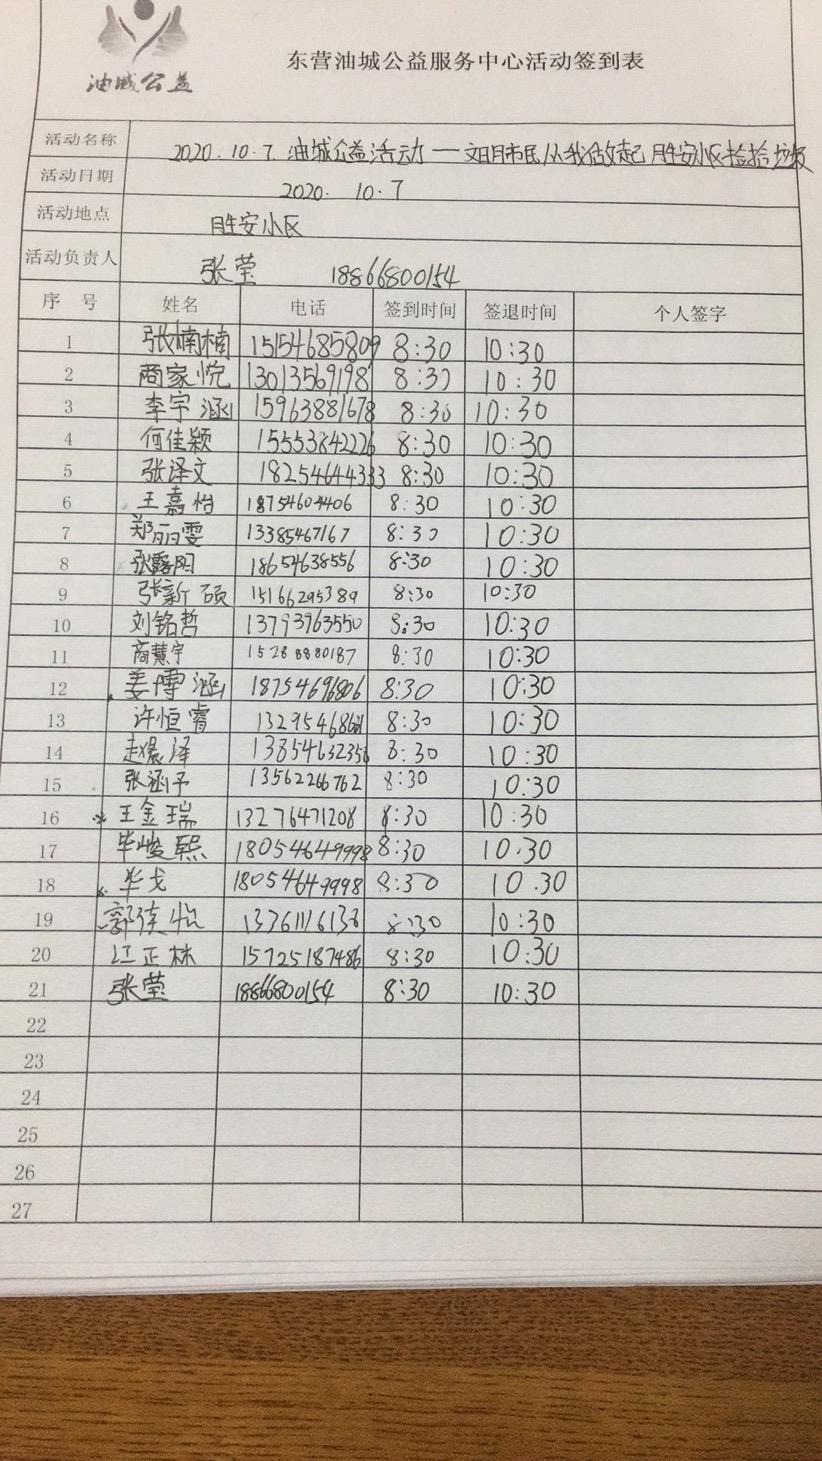 油城公益
东营油城公益服务中心活动签到表
活动名称 2020.10.7. 油城公益活动——文明市民从我做起 胜安小区捡拾垃圾
活动日期 2020. 10.7
活动地点 胜安小区
活动负责人 张莹 18866800154
序 号 姓名 电话 签到时间 签退时间 个人签字
1 张楠楠 15154685809 8:30 10:30
2 商家悦 13013569198 8:30 10:30
3 李宇涵 15963881678 8:30 10:30
4 何佳颖 15553842226 8:30 10:30
5 张泽文 18254644333 8:30 10:30
6 王嘉怡 18754604406 8:30 10:30
7 郑丽雯 13385467167 8:30 10:30
8 张露阳 18654638556 8:30 10:30
9 张新硕 15166295389 8:30 10:30
10 刘铭哲 13793963550 8:30 10:30
11 商慧宇 15288880187 8:30 10:30
12 姜博涵 18754696806 8:30 10:30
13 许恒睿 8:30 10:30
14 赵晨泽 13854632356 8:30 10:30
15 张涵予 13562266762 8:30 10:30
16 王金瑞 13276471208 8:30 10:30
17 毕峻熙 18054649998 8:30 10.30
18 华戈 18054649998 8:30 10.30
19 8:30 10:30
20 江正林 15725187486 8:30 10:30
21 张莹 18866800154 8:30 10:30
22
23
24
25
26
27